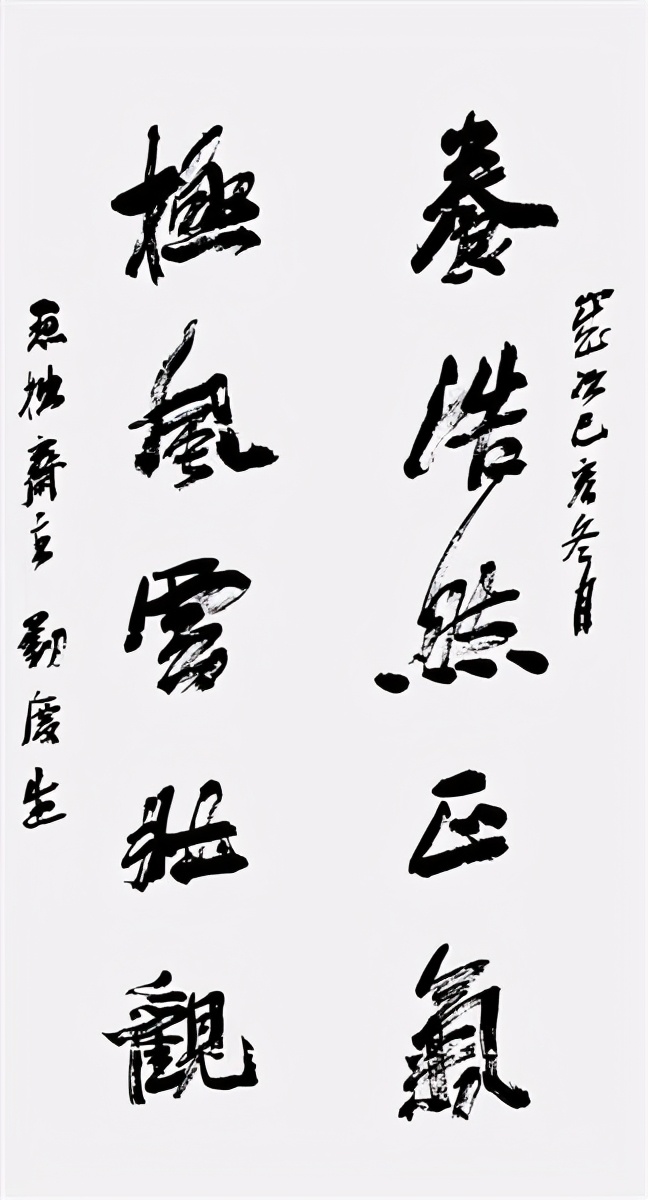 歲次己亥冬月
養浩然正氣
極風雲壯觀
思拙齋主劉慶生